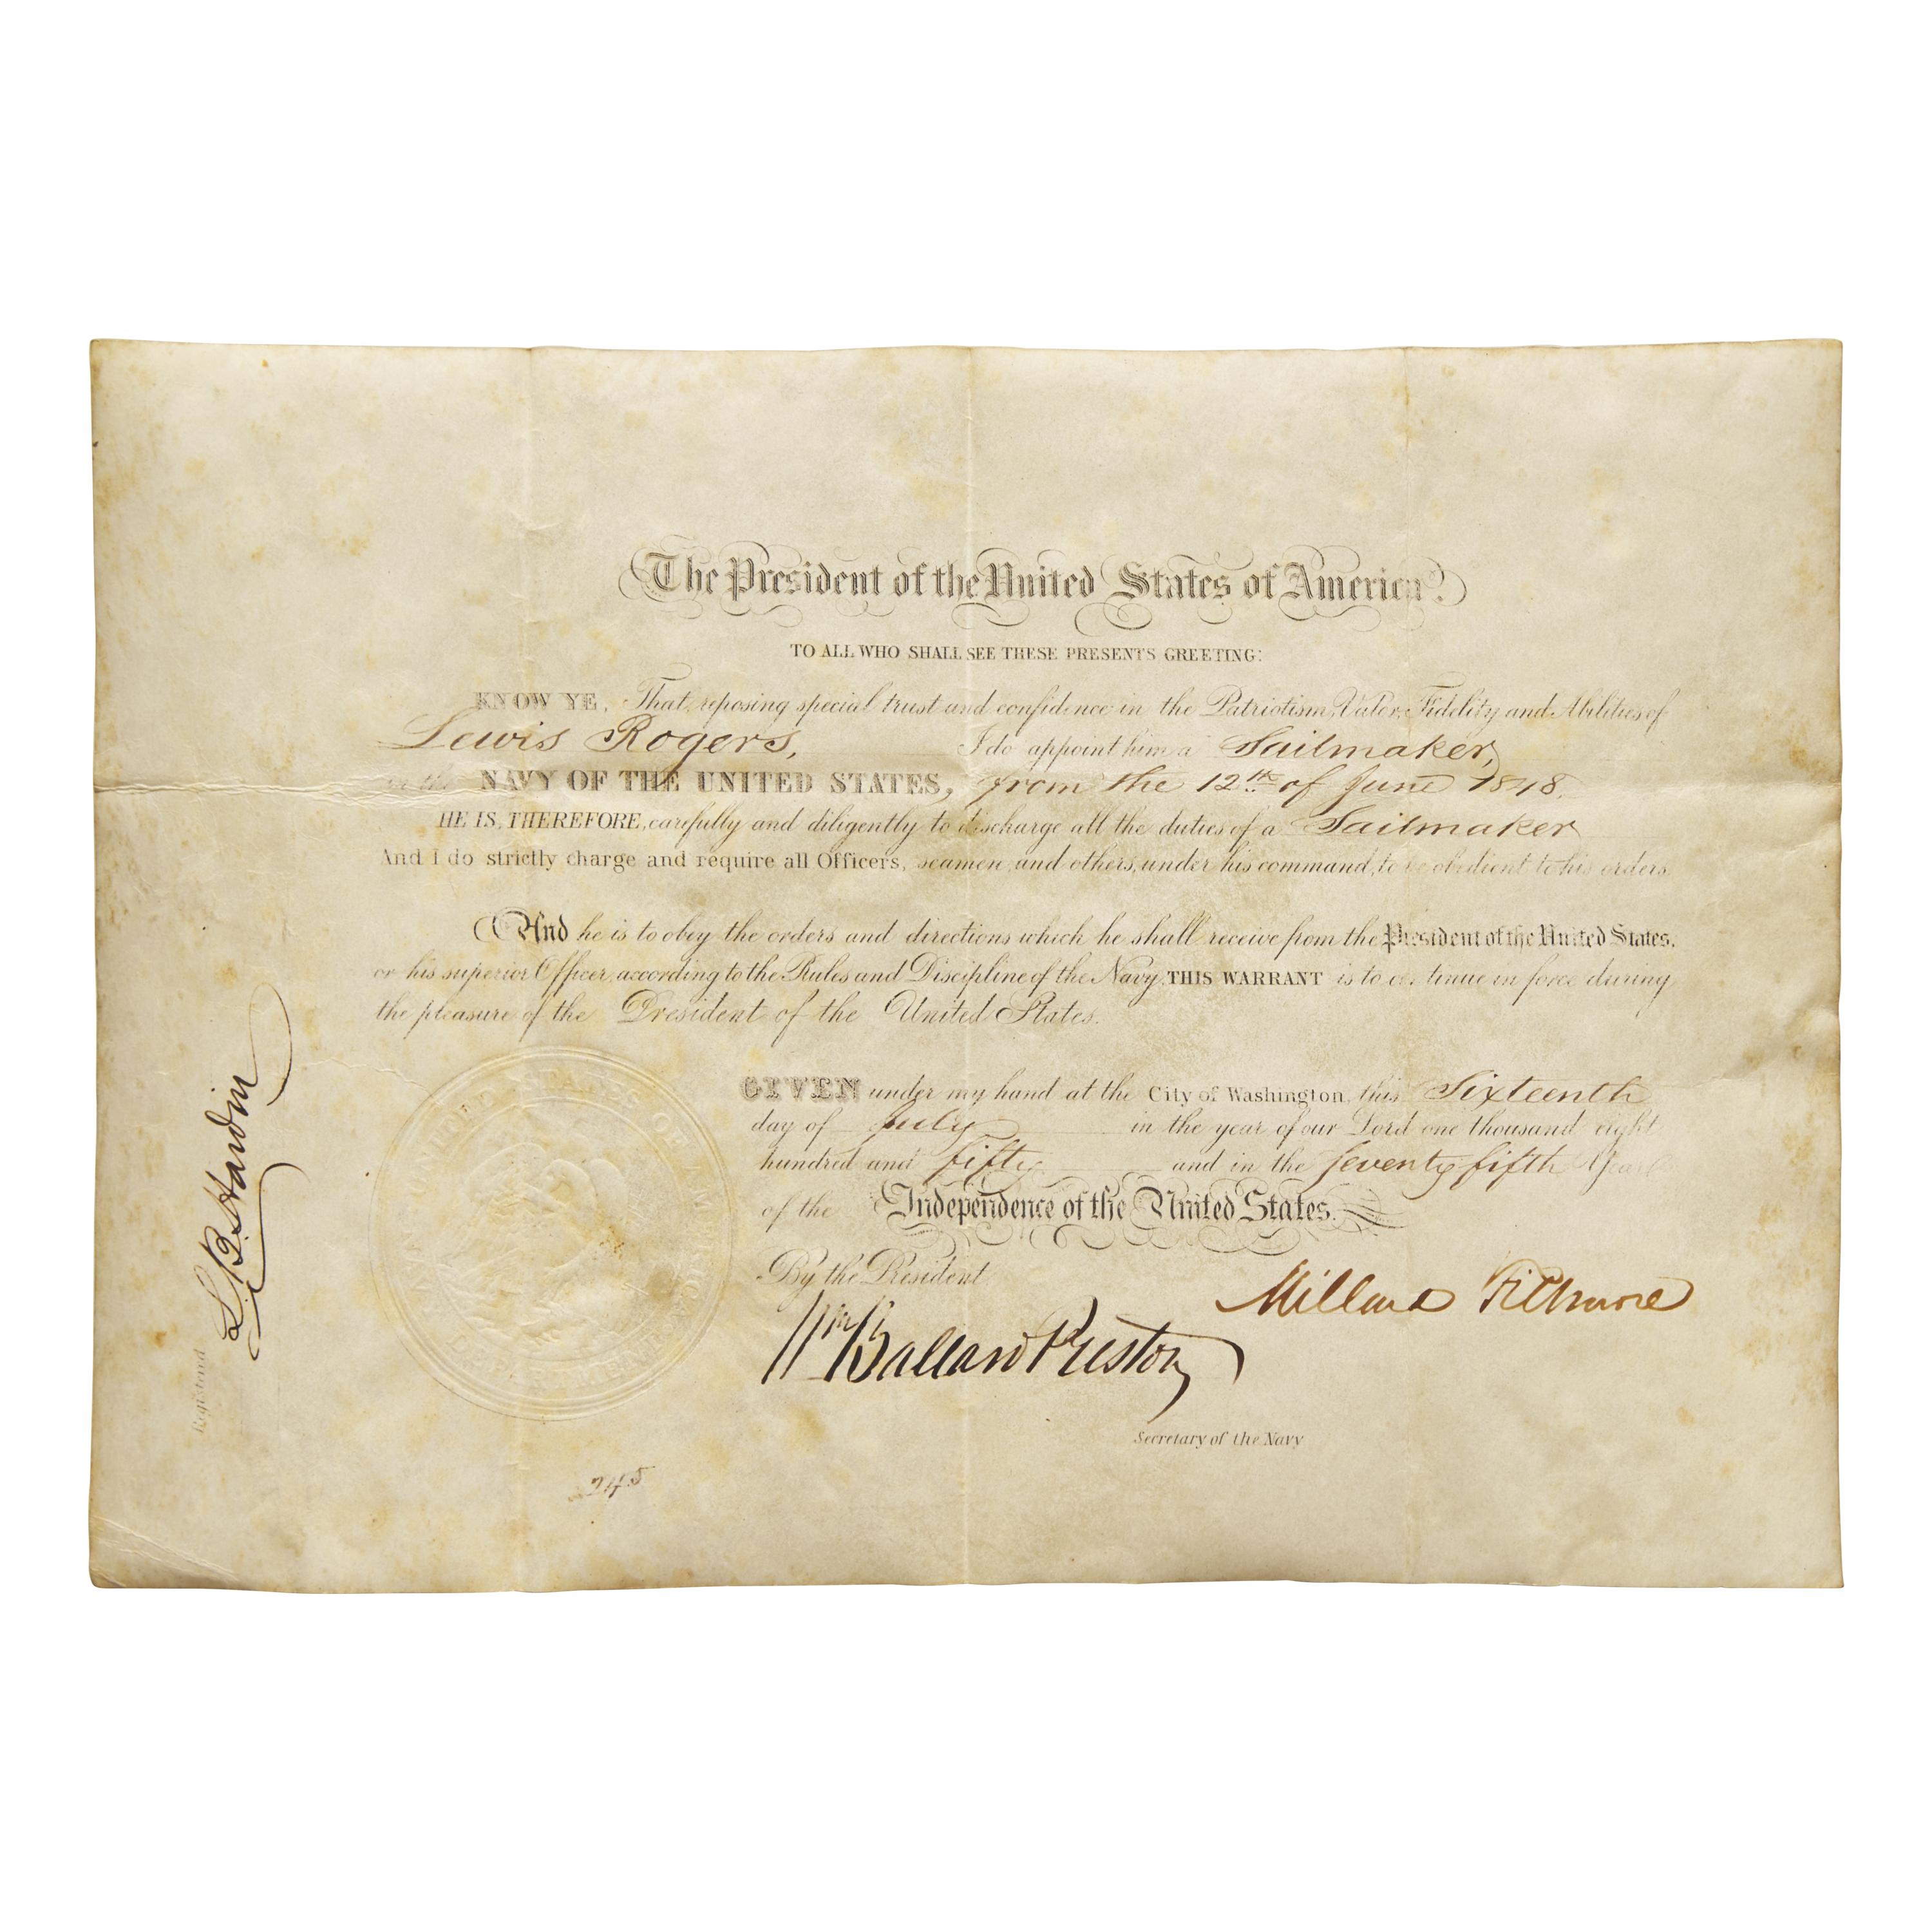 The President of the United States of America.
TO ALL WHO SHALL SEE THESE PRESENTS GREETING:
KNOW YE, That, reposing special trust and confidence in the Patriotism, Valor, Fidelity and Abilities of
Lewis Rogers, I do appoint him a Sailmaker,
in the NAVY OF THE UNITED STATES, from the 12th of June 1848.
HE IS, THEREFORE, carefully and diligently to discharge all the duties of a Sailmaker
And I do strictly charge and require all Officers, seamen, and others, under his command, to be obedient to his orders.
And he is to obey the orders and directions which he shall receive from the President of the United States,
or his superior Officer, according to the Rules and Discipline of the Navy. THIS WARRANT is to continue in force during
the pleasure of the President of the United States.
GIVEN under my hand at the City of Washington, this Sixteenth
day of July in the year of our Lord one thousand eight
hundred and fifty and in the seventy fifth Year
of the Independence of the United States.
By the President
Millard Fillmore
Wm Ballard Preston
Secretary of the Navy
Registered
L. B. Hardin
245